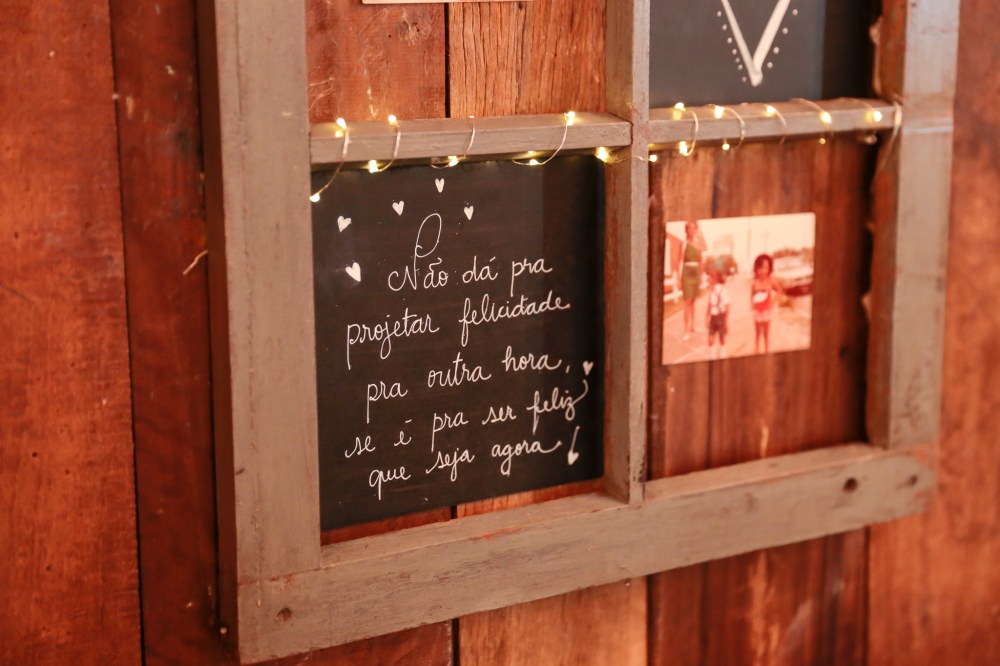 Não dá pra
projetar felicidade
pra outra hora,
se é pra ser feliz
que seja agora!